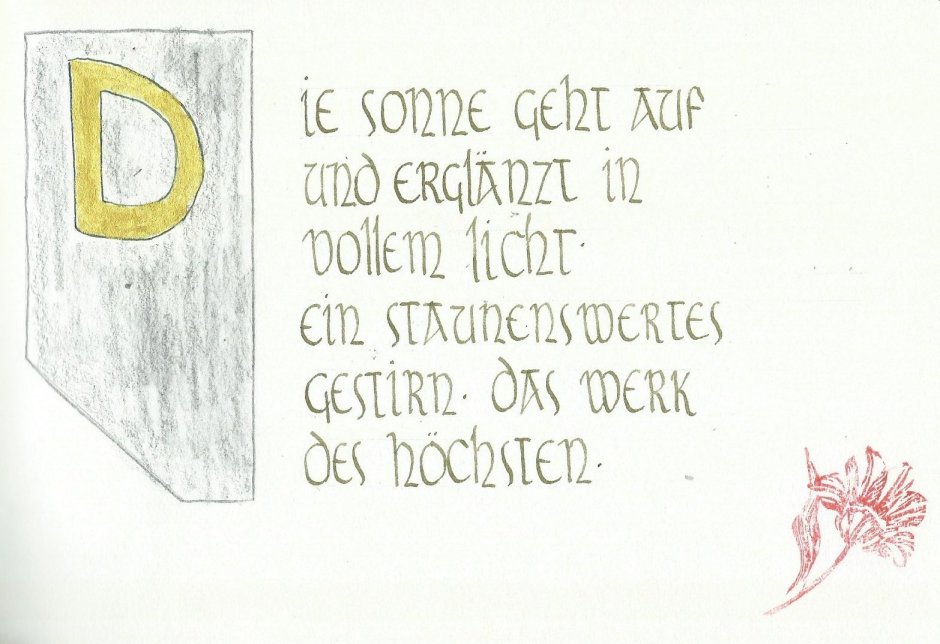 DIE SONNE GEHT AUF
UND ERGLÄNZT IN
VOLLEM LICHT·
EIN STAUNENSWERTES
GESTIRN· DAS WERK
DES HÖCHSTEN·